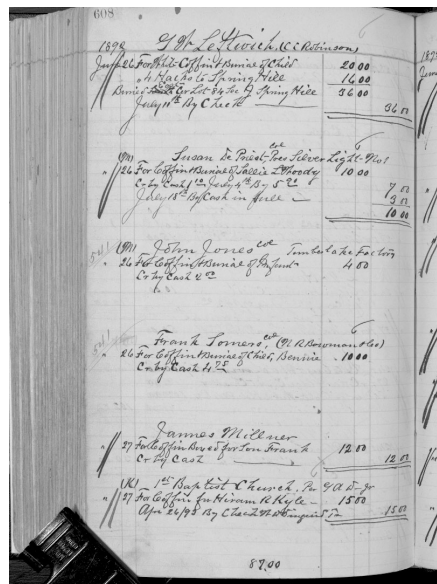 608
1892 G W Leftwich, (C C Robinson)
June 26 For Wht. Coffin & Burial of Child 20 00
" 4 Hacks to Spring Hill 16 00
Buried Lot 34 Sec A Spring Hill 36 00
July 11th By Check 36 00
(M) Susan De Priest col Pres Silver Light No 1
" 26 For Coffin & Burial of Sallie L Moody 10 00
Cr by Cash 1 00 July 4th By 5 00 7 00
July 15th By Cash in full 3 00
10 00
541 (M) John Jones col Timberlake Factory
" 26 For Coffin & Burial of Infant 4 00
Cr by Cash 2 00
541 Frank Somers, col (N R Bowman & Co)
" 26 For Coffin & Burial of Child, Bennie 10 00
Cr by Cash 4 75
James Millner
" 27 For Coffin Buried for Son Frank 12 00
Cr by Cash 12 00
(K) 1st Baptist Church. Per
" 27 For Coffin for Hiram R Kyle 15 00
Apr 26/93 By Check 15 00
87.00